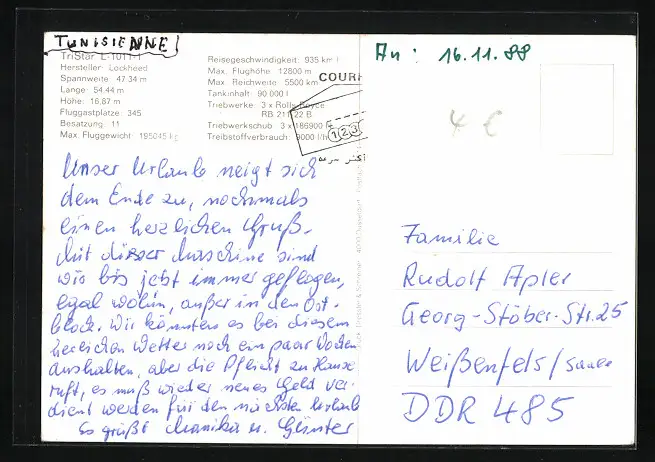 TUNISIENNE!
TriStar L-1011-1
Hersteller: Lockheed
Spannweite: 47.34 m
Länge: 54.44 m
Höhe: 16,87 m
Fluggastplätze: 345
Besatzung: 11
Max. Fluggewicht: 195045 kg
Reisegeschwindigkeit: 935 km
Max. Flughöhe: 12800 m
Max. Reichweite: 5500 km
Tankinhalt: 90 000 l
Triebwerke: 3 x Rolls Royce
RB 211 22 B
Triebwerkschub: 3 x
Treibstoffverbrauch: 9000 l/h
COURR
123
أكثر سرعة
An: 16.11.88
4 €
Unser Urlaub neigt sich
dem Ende zu, nochmals
einen herzlichen Gruß.
Mit dieser Maschine sind
wir bis jetzt immer geflogen,
egal wohin, außer in den Ost-
block. Wir könnten es bei diesem
herrlichen Wetter noch ein paar Wochen
aushalten, aber die Pflicht zu Hause
ruft, es muß wieder neues Geld ver-
dient werden für den nächsten Urlaub
Es grüßt Monika u. Günter
Familie
Rudolf Apler
Georg-Stöber-Str. 25
Weißenfels/Saale
DDR 485